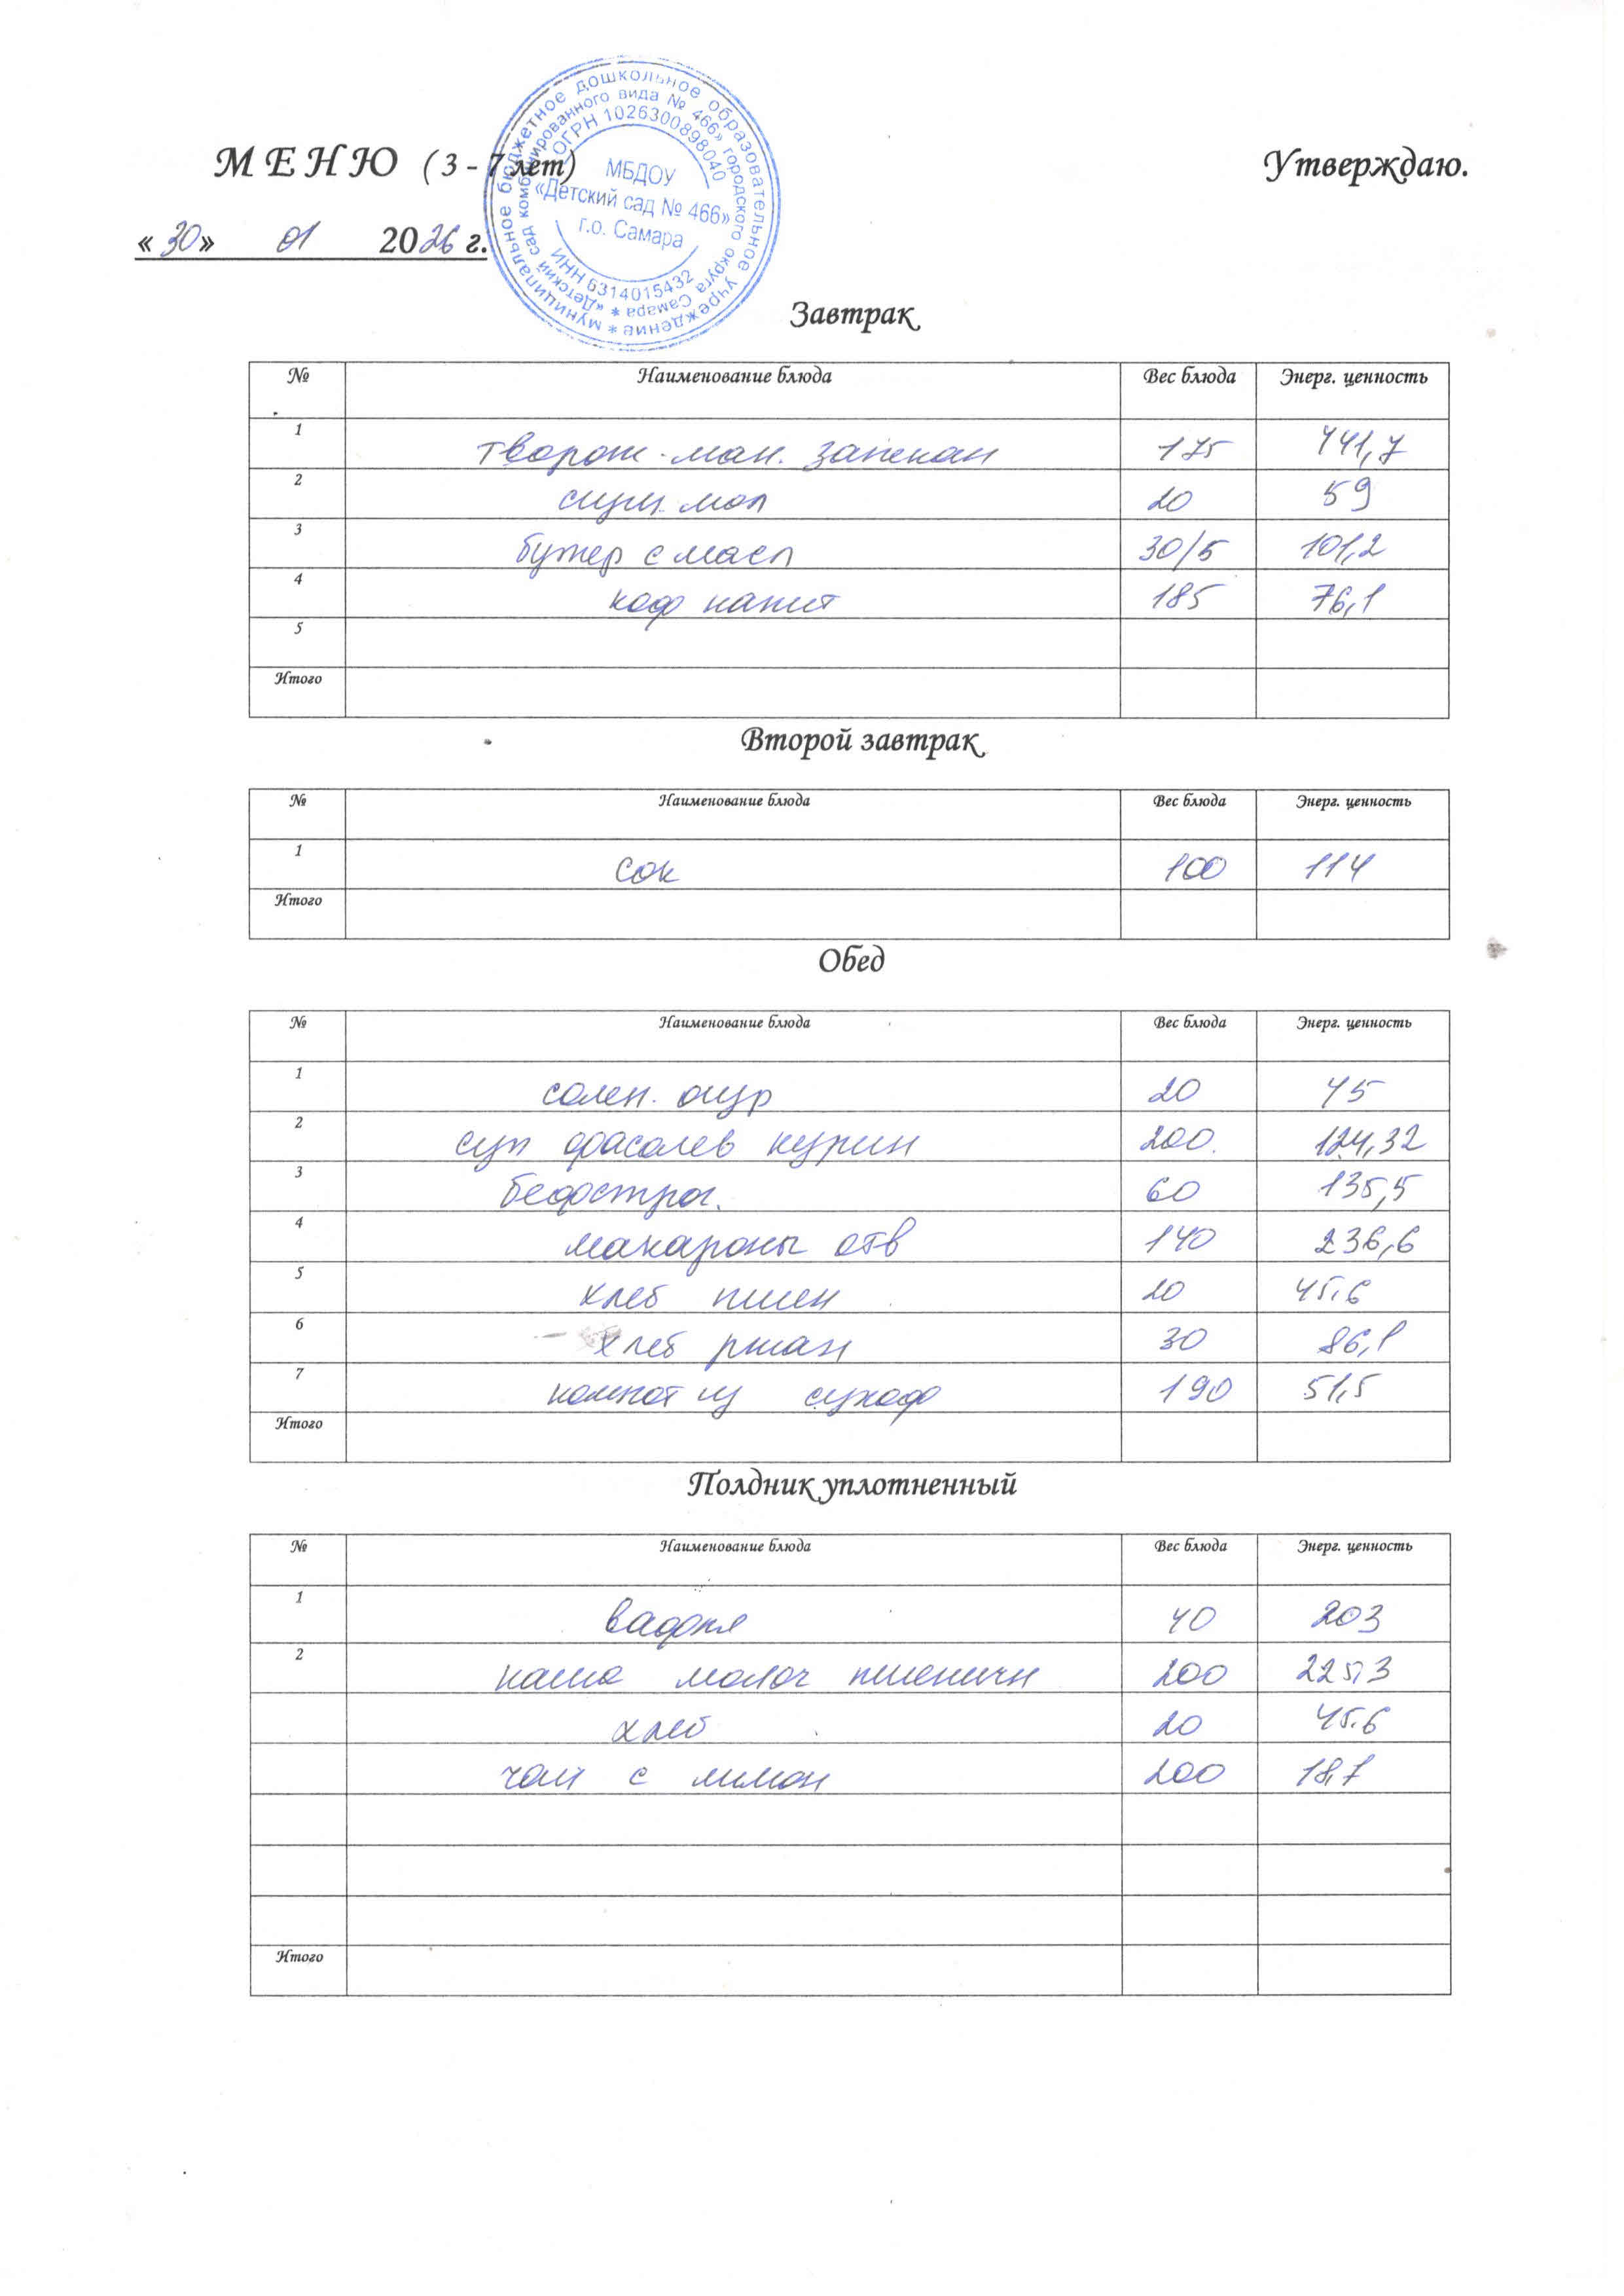 М Е Н Ю ( 3 - 7 лет) Утверждаю.
« 30 » 01 2026 г.
муниципальное бюджетное дошкольное образовательное учреждение *
«Детский сад комбинированного вида № 466» городского округа Самара *
ОГРН 1026300898040
МБДОУ
«Детский сад № 466»
г.о. Самара
ИНН 6314015432
Завтрак
№ Наименование блюда Вес блюда Энерг. ценность
1 творож-ман. запекан 175 441,7
2 сгущ. мол 20 59
3 бутер с масл 30/5 101,2
4 коф напит 185 76,1
5
Итого
Второй завтрак
№ Наименование блюда Вес блюда Энерг. ценность
1 сок 100 114
Итого
Обед
№ Наименование блюда Вес блюда Энерг. ценность
1 солен. огур 20 45
2 суп фасолев курин 200. 124,32
3 бефстрог. 60 135,5
4 макароны отв 140 236,6
5 хлеб пшен 20 45.6
6 хлеб ржан 30 86,1
7 компот из сухоф 190 51,5
Итого
Полдник уплотненный
№ Наименование блюда Вес блюда Энерг. ценность
1 вафля 40 203
2 каша молоч пшеничн 200 225,3
хлеб 20 45.6
чай с лимон 200 18,7
Итого